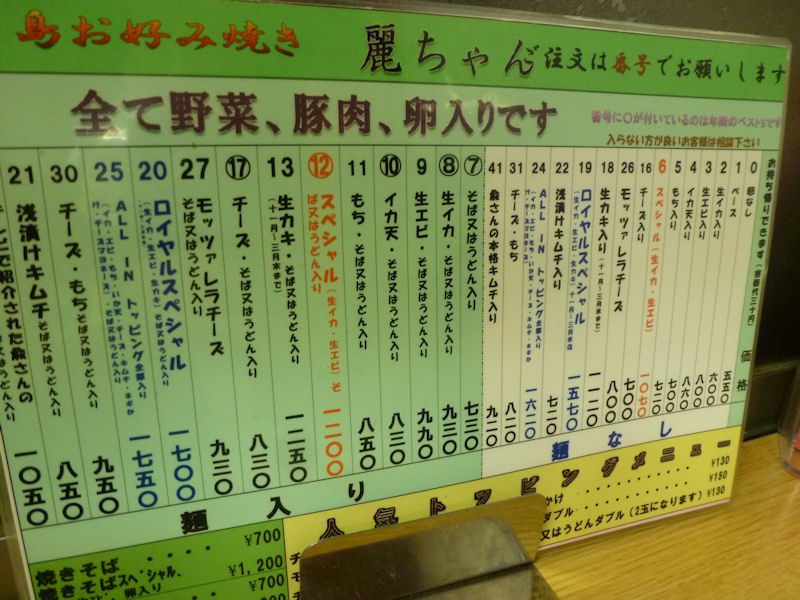 島お好み焼き 麗ちゃん 注文は番号でお願いします
全て野菜、豚肉、卵入りです
番号に〇が付いているのは年間のベスト5です
入らない方が良いお客様は相談下さい
お持ち帰りできます(容器代三十円) 価格
0 卵なし
1 ベース 五五〇
2 生イカ入り 六〇〇
3 生エビ入り 七〇〇
4 イカ天入り 八六〇
5 もち入り 七二〇
6 スペシャル(生イカ・生エビ) 一〇七〇
16 チーズ入り 七〇〇
26 モッツァレラチーズ 八〇〇
18 生カキ入り(十一月~三月末まで) 一一二〇
19 ロイヤルスペシャル(生イカ・生エビ・生カキ) 十一月~三月末迄 一五七〇
22 浅漬けキムチ入り 七二〇
24 ALL IN トッピング全部入り 一六二〇
31 チーズ・もち 八二〇
41 兪さんの本格キムチ入り 九二〇
麺なし
⑦ そば又はうどん入り 七三〇
⑧ 生イカ・そば又はうどん入り 九三〇
9 生エビ・そば又はうどん入り 九九〇
⑩ イカ天・そば又はうどん入り 八三〇
11 もち・そば又はうどん入り 八五〇
⑫ スペシャル(生イカ・生エビ)そば又はうどん入り 一二〇〇
13 生カキ・そば又はうどん入り(十一月~三月末まで) 一二五〇
⑰ チーズ・そば又はうどん入り 八三〇
27 モッツァレラチーズ そば又はうどん入り 九三〇
20 ロイヤルスペシャル(生イカ・生エビ・生カキ)そば又はうどん入り 一七〇〇
25 ALL IN トッピング全部入り(イカ・エビ・もち・いか天・チーズ・キムチ・ネギかけ・チーズ・スマヨネーズ)そば又はうどん入り 一七五〇
30 チーズ・もちそば又はうどん入り 八五〇
21 浅漬けキムチそば又はうどん入り 八五〇
テレビで紹介された兪さんの うどん入り 一〇五〇
麺入り
人気トッピングメニュー
かけ ・・・・・・・ ¥130
ダブル ・・・・・・・ ¥150
又はうどんダブル(2玉になります) ¥130
焼きそば ・・・・ ¥700
焼きそばスペシャル、 ¥1,200
卵入り ¥700